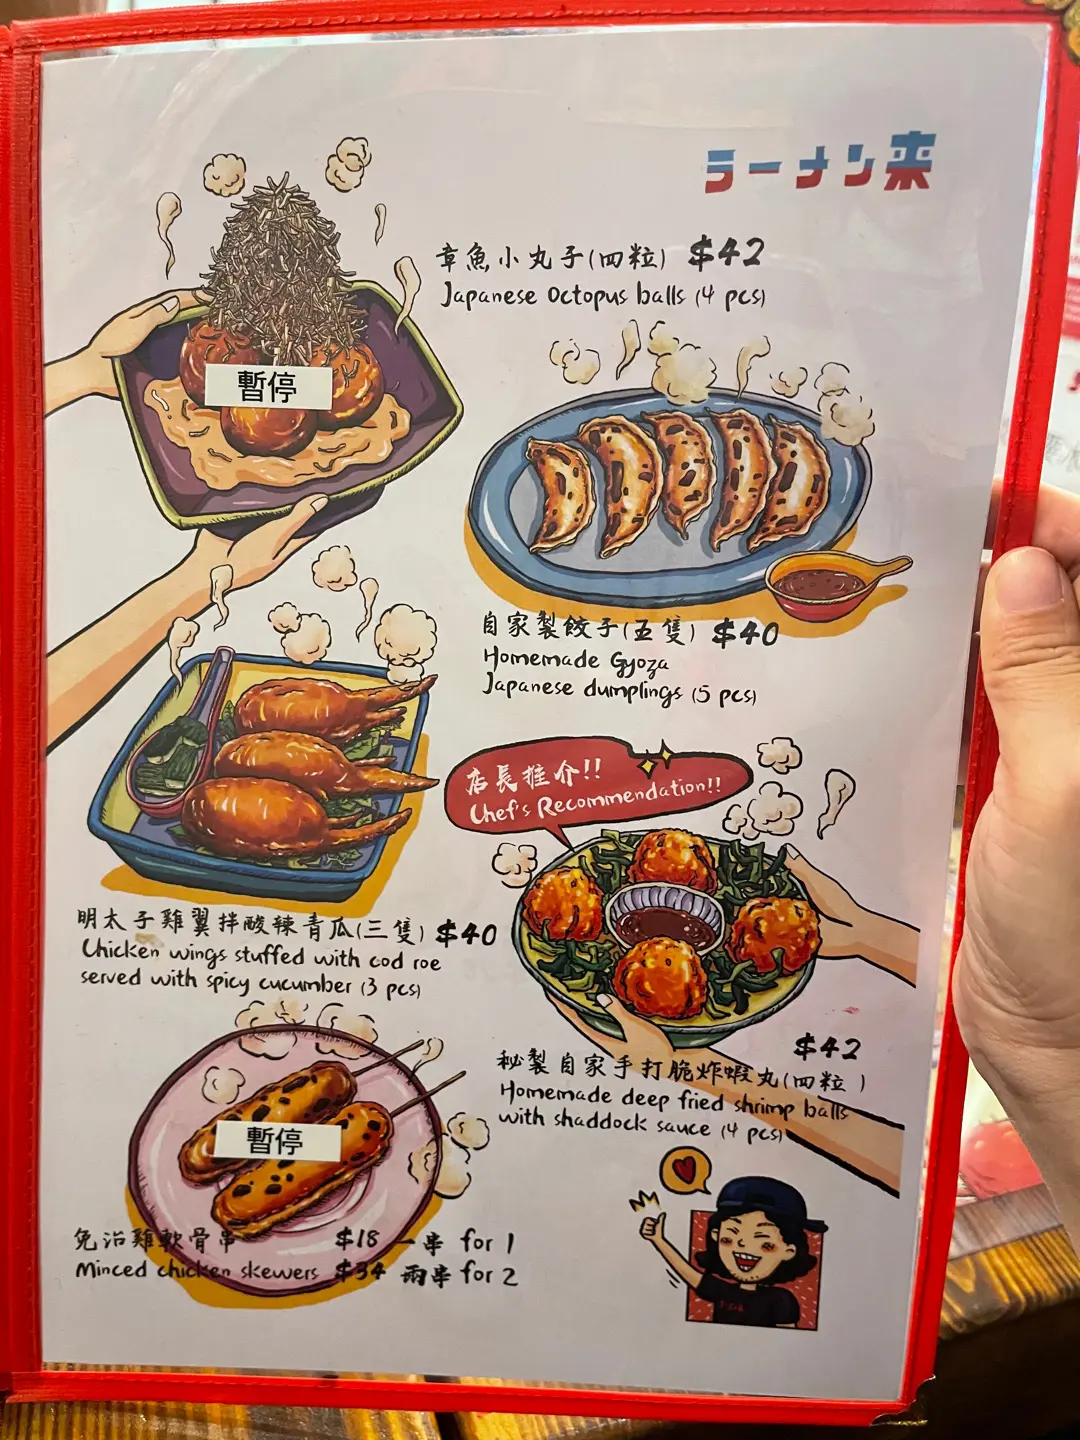 ラーメン来
章魚小丸子(四粒) $42
Japanese Octopus balls (4 pcs)
暫停
自家製餃子(五隻) $40
Homemade Gyoza
Japanese dumplings (5 pcs)
店長推介!!
Chef's Recommendation!!
明太子雞翼拌酸辣青瓜(三隻) $40
Chicken wings stuffed with cod roe
served with spicy cucumber (3 pcs)
$42
秘製自家手打脆炸蝦丸(四粒)
Homemade deep fried shrimp balls
with shaddock sauce (4 pcs)
暫停
免治雞軟骨串 $18 一串 for 1
Minced chicken skewers $34 兩串 for 2